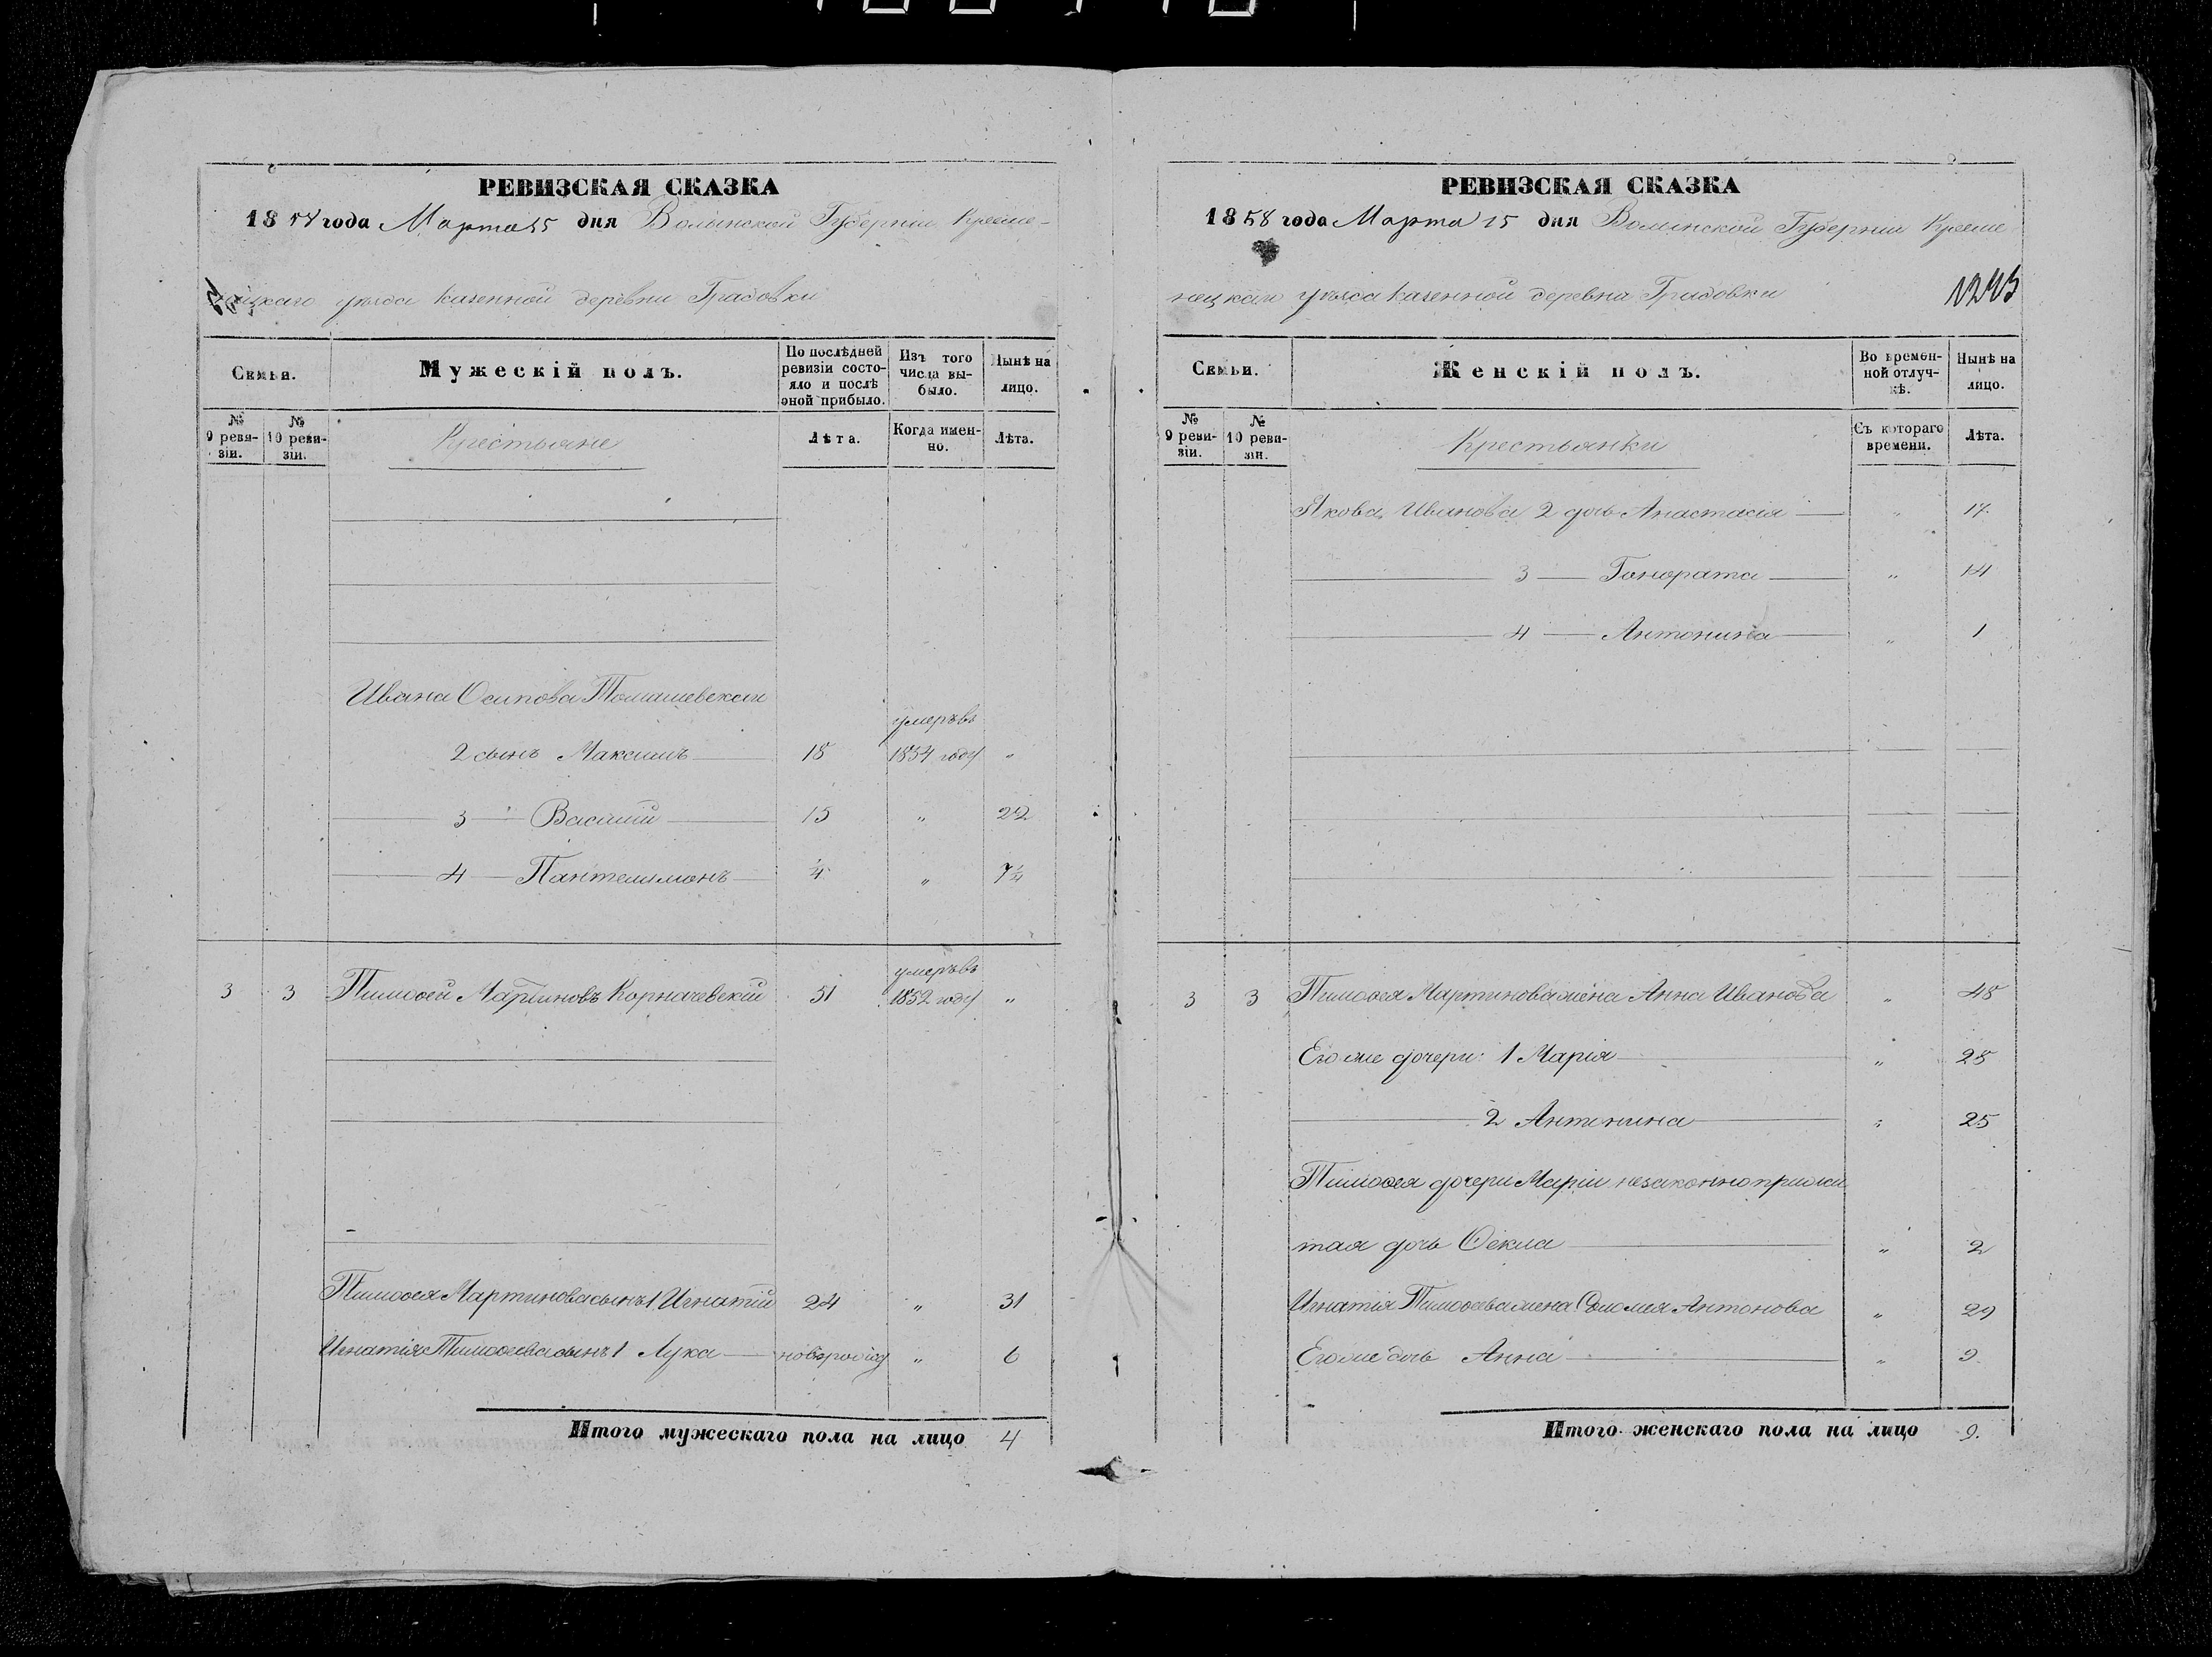 РЕВИЗСКАЯ СКАЗКА
1858 года Марта 15 дня Волынской Губерніи Креме-
нецкаго уѣзда казенной деревни Градовки
Семьи.
Мужескій полъ.
По послѣдней ревизіи состо-яло и послѣ оной прибыло.
Изъ того числа вы-было.
Нынѣ на лицо.
№ 9 реви-зіи.
№ 10 реви-зіи.
Крестьяне
Лѣта.
Когда имен-но.
Лѣта.
Ивана Осипова Томашевскаго
умеръ въ
2 сынъ Максимъ 18 1854 году "
3 Василій 15 " 22
4 Пантелимонъ ¼ " 7¼
умеръ въ
3 3 Тимоѳей Мартиновъ Корначевскій 51 1852 году "
Тимоѳея Мартинова сынъ 1 Игнатій 24 " 31
Игнатія Тимоѳеева сынъ 1 Лука новорожд " 6
Итого мужескаго пола на лицо 4
РЕВИЗСКАЯ СКАЗКА
1858 года Марта 15 дня Волынской Губерніи Креме
нецкаго уѣзда казенной деревни Градовки
Семьи.
Женскій полъ.
Во времен-ной отлуч-кѣ.
Нынѣ на лицо.
№ 9 реви-зіи.
№ 10 реви-зіи.
Крестьянки
Съ котораго времени.
Лѣта.
Якова Иванова 2 дочь Анастасія " 17
3 Гонората " 14
4 Антонина " 1
3 3 Тимоѳея Мартинова жена Анна Иванова " 48
Его же дочери: 1 Марія " 28
2 Антонина " 25
Тимоѳея дочери Маріи незаконноприжи
тая дочь Ѳекла " 2
Игнатія Тимоѳеева жена Соломея Антонова " 29
Его же дочь Анна " 9
Итого женскаго пола на лицо 9.